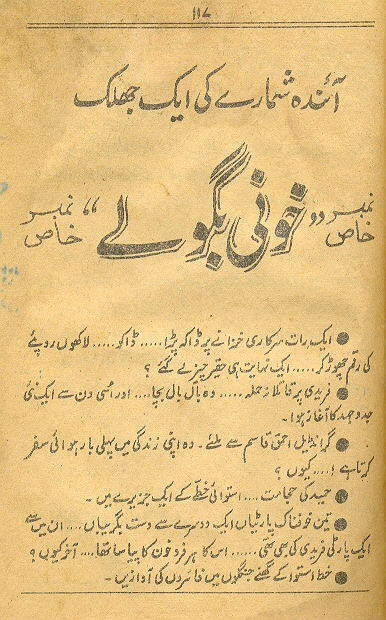 ۱۱۷
آئندہ شمارے کی ایک جھلک
نمبر خاص “ خونی بگولے ” نمبر خاص
● ایک رات سرکاری خزانے پر ڈاکہ پڑا ..... ڈاکو ..... لاکھوں روپئے
کی رقم چھوڑ کر ..... ایک نہایت ہی حقیر چیز لے گئے ؟
● فریدی پر قاتلانہ حملہ ..... وہ بال بال بچا .... اور اُسی دن سے ایک نئی
جدوجہد کا آغاز ہوا۔
● گرانڈیل احمق قاسم سے ملئے۔ وہ اپنی زندگی میں پہلی بار ہوائی سفر
کرتا ہے ! .... کیوں ؟
● حمید کی حجامت .... استوائی خطّے کے ایک جزیرے میں ۔
● تین خوفناک پارٹیاں ایک دوسرے سے دست بگریباں .... ان میں سے
ایک پارٹی فریدی کی بھی تھی ..... اس کا ہر فرد خون کا پیاسا تھا .... آخر کیوں ؟
● خط استوا کے گھنے جنگلوں میں فائروں کی آوازیں ۔